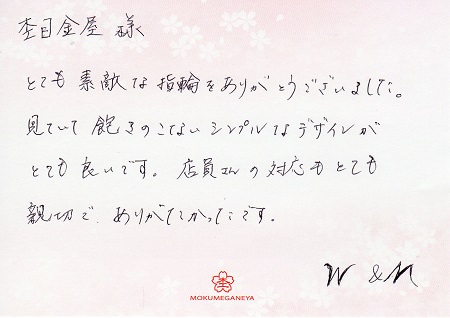 杢目金屋 様
とても 素敵な 指輪を ありがとうございました。
見ていて 飽きのこない シンプルなデザインが
とても 良いです。 店員さんの対応も とても
親切で、ありがたかったです。
W & M
MOKUMEGANEYA